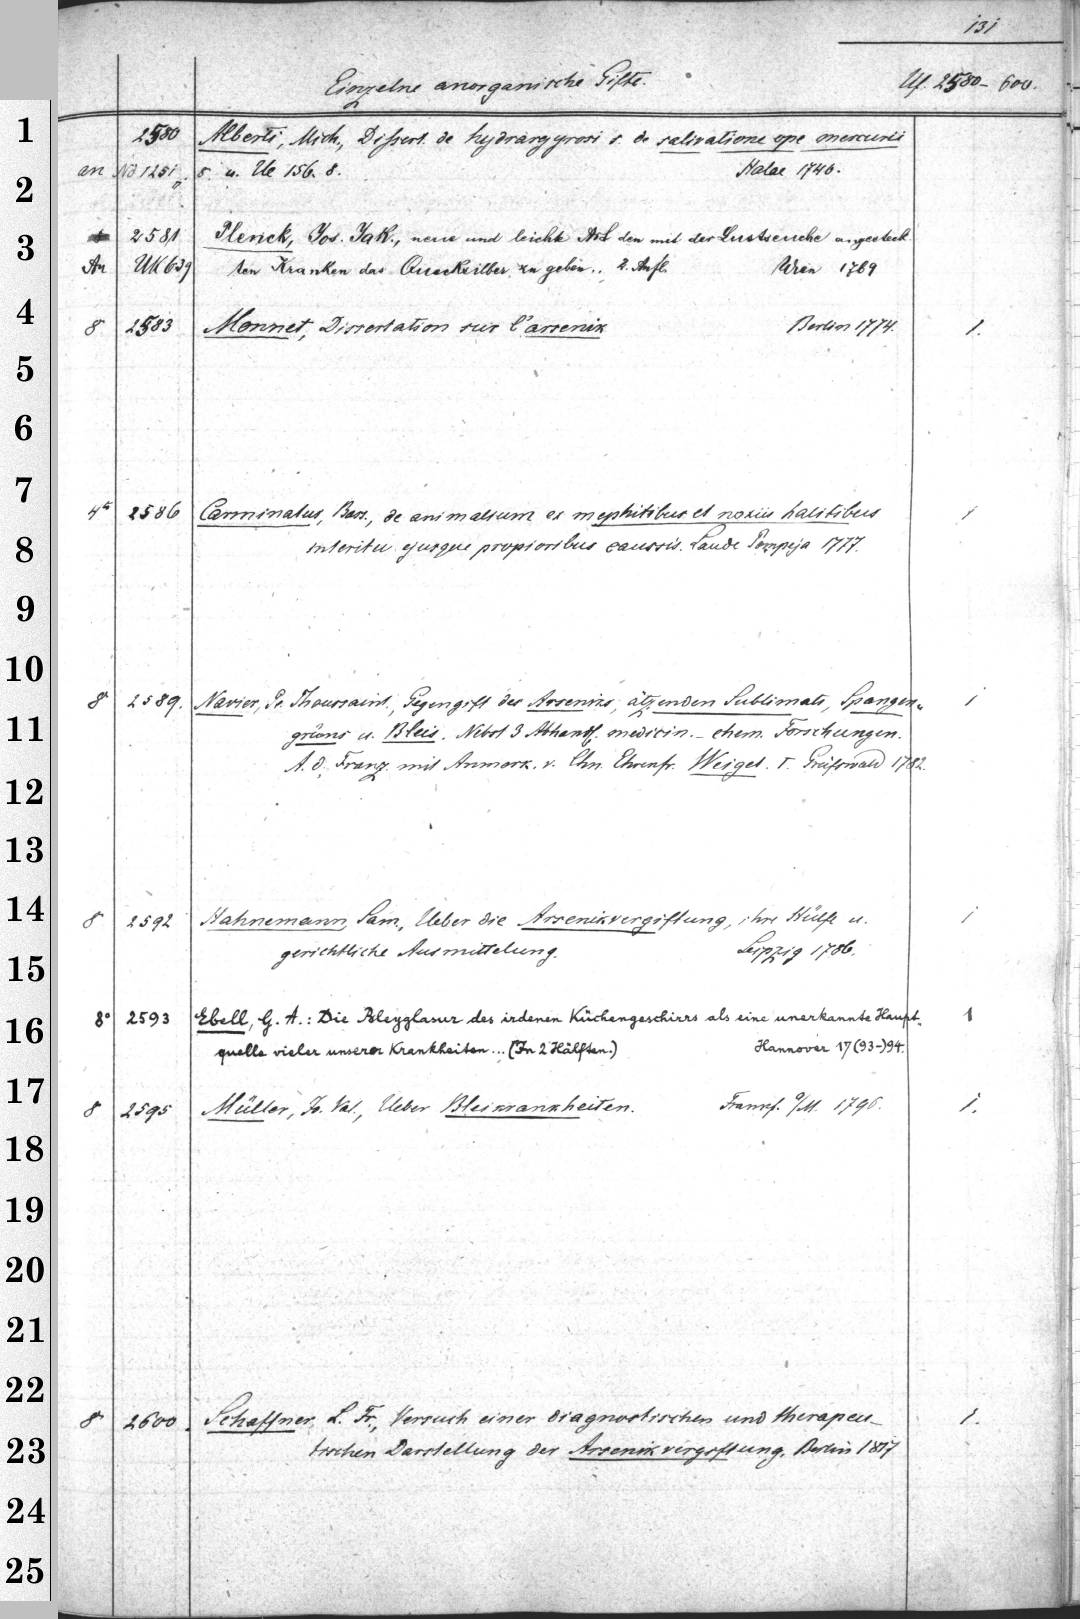 131
Einzelne anorganische Gifte. Uf. 2580-600.
1 2580 Alberti, Mich., Dissert. de hydrargyrosi s. de salivatione ope mercurii
an Nd 1251 5. u. Ue 156. 8. Halae 1746.
2
3 2581 Plenck, Jos. Jak., neue und leichte Art den mit der Lustseuche angesteck-
An UK 639 ten Kranken das Quecksilber zu geben.. 2. Aufl. Wien 1769
4 8 2583 Monnet, Dissertation sur l'arsenik Berlin 1774. 1.
5
6
7 4° 2586 Carminatus, Bass., de animalium ex mephitibus et noxiis halitibus 1
8 interitu ejusque propioribus caussis. Laude Pompeja 1777.
9
10
8° 2589. Navier, P. Toussaint, Gegengift des Arseniks, ätzenden Sublimats, Spangen- 1
11 grüns u. Bleis. Nebst 3 Abhandl. medicin.-chem. Forschungen.
A. d. Franz. mit Anmerk. v. Chn. Ehrenfr. Weigel. I. Greifswald 1782.
12
13
14 8 2592 Hahnemann, Sam., Ueber die Arsenikvergiftung, ihre Hülfe u. 1
15 gerichtliche Ausmittelung. Leipzig 1786.
16 8° 2593 Ebell, G. A.: Die Bleyglasur des irdenen Küchengeschirrs als eine unerkannte Haupt- 1
quelle vieler unserer Krankheiten... (In 2 Hälften.) Hannover 17(93-)94.
17 8 2595 Müller, Jo. Val., Ueber Bleikrankheiten. Frankf. a/M. 1796. 1.
18
19
20
21
22
8° 2600. Schaffner, L. Fr., Versuch einer diagnostischen und therapeu- 1.
23 tischen Darstellung der Arsenikvergiftung. Berlin
24
25